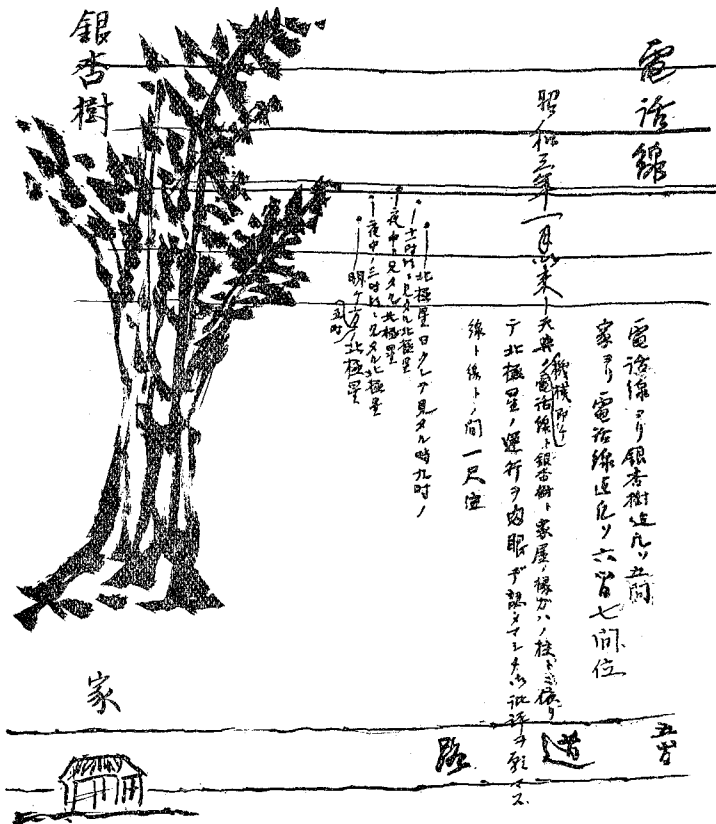 電話線
電話線ヨリ銀杏樹迄凡ソ五間
家ヨリ電話線迄凡ソ六 七間位
昭和三年一月以来
天与ノ機械即チ電話線ト銀杏樹ト家屋ノ縁ガハノ柱トニ依リ
テ北極星ノ運行ヲ肉眼デ認メマシタ御批評ヲ願マス
線ト線トノ間一尺位
北極星 見タル時九時ノ
十一時 ニ見タル北極星
夜中ニ見タル北極星
夜中ノ三時 ニ見タル北極星
明ケ方ノ北極星
五時
銀杏樹
家
道路